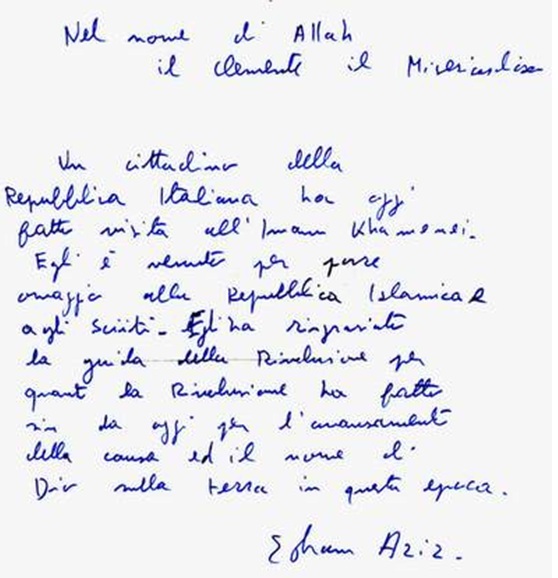 Nel nome di Allah
il Clemente il Misericordioso
Un cittadino della
Repubblica Italiana ha oggi
fatto visita all'Imam Khamenei.
Egli è venuto per porre
omaggio alla Repubblica Islamica e
agli sciiti. Egli ha ringraziato
la guida della Rivoluzione per
quanto la Rivoluzione ha fatto
sin da oggi per l'avanzamento
della causa ed il nome di
Dio sulla terra in questa epoca.
Aziz.